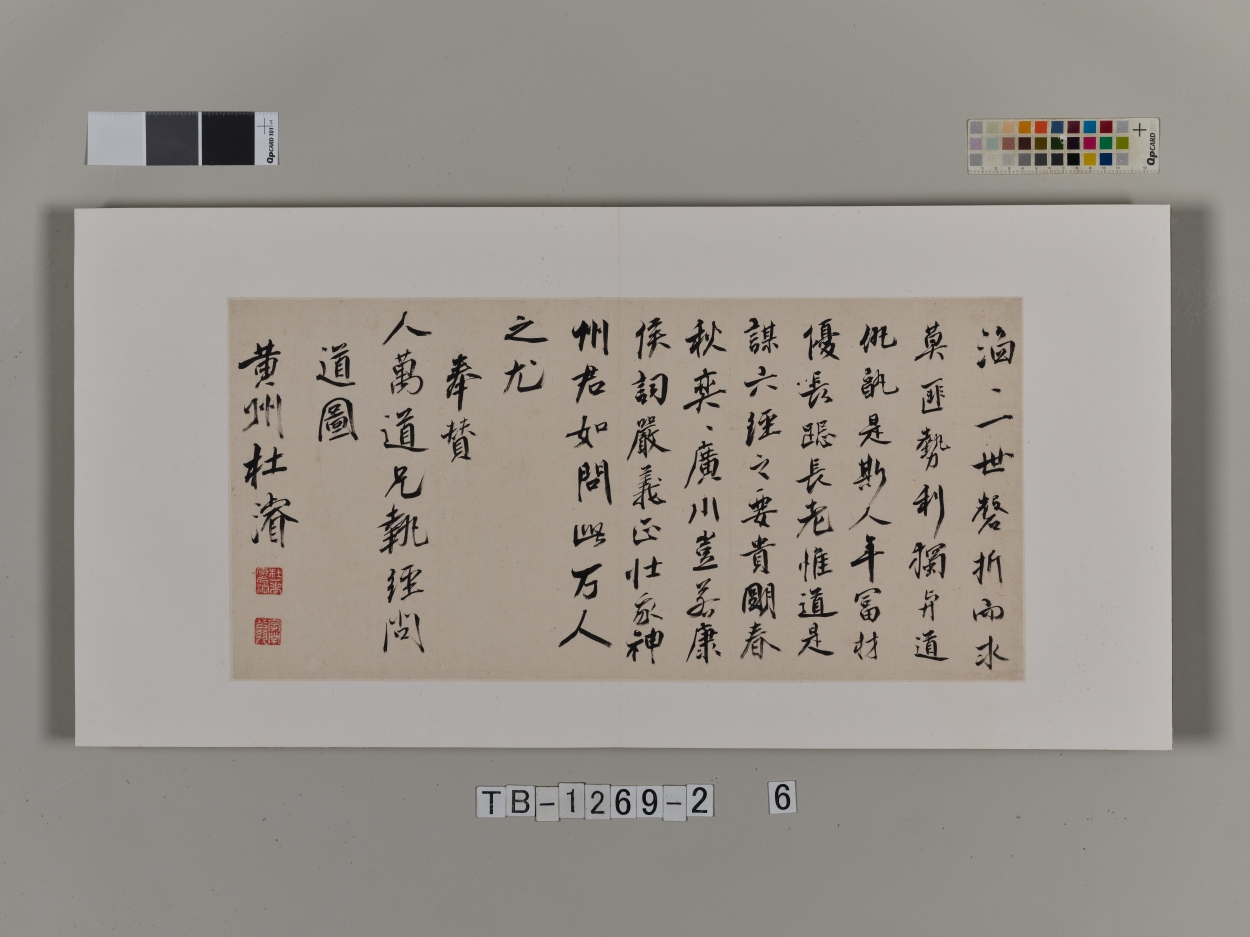 滔〻一世磬折而求
莫匪勢利獨弁道
仇孰是斯人年富材
優長跽長老惟道是
謀六經之要貴闡春
秋奕〻廣川豈若康
侯詞嚴義正壯我神
州君如問此万人
之尤
奉贊
人萬道兄執經問
道圖
黃州杜濬
TB-1269-2 6
QPCARD 101
QPCARD